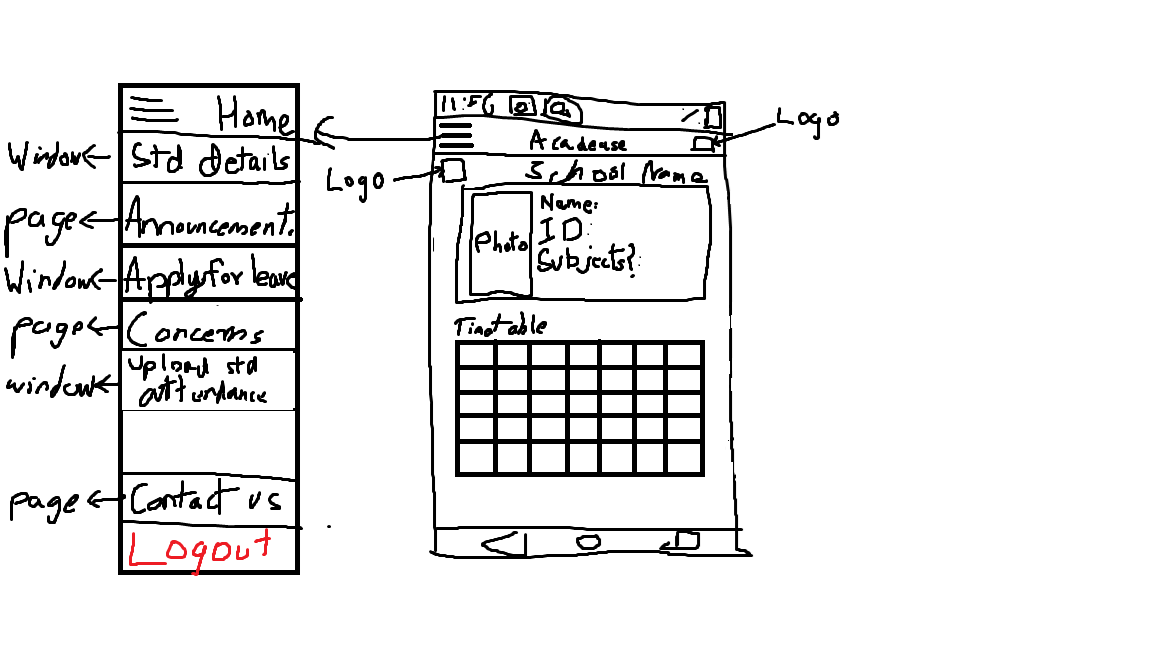 Home
Window
Std details
page
Announcement.
Window
Apply for leave
page
Concerns
window
upload std
attendance
page
Contact us
Logout
11:56
Logo
Acadease
Logo
School Name
Photo
Name:
ID:
Subjects?:
Timetable